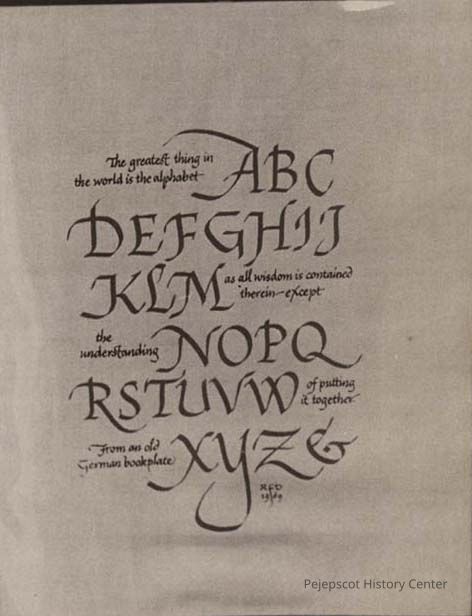 The greatest thing in
the world is the alphabet
ABC
DEFGHIJ
KLM
as all wisdom is contained
therein—except
the
understanding
NOPQ
RSTUVW
of putting
it together
From an old
German bookplate
XYZ&
RFD
Pejepscot History Center